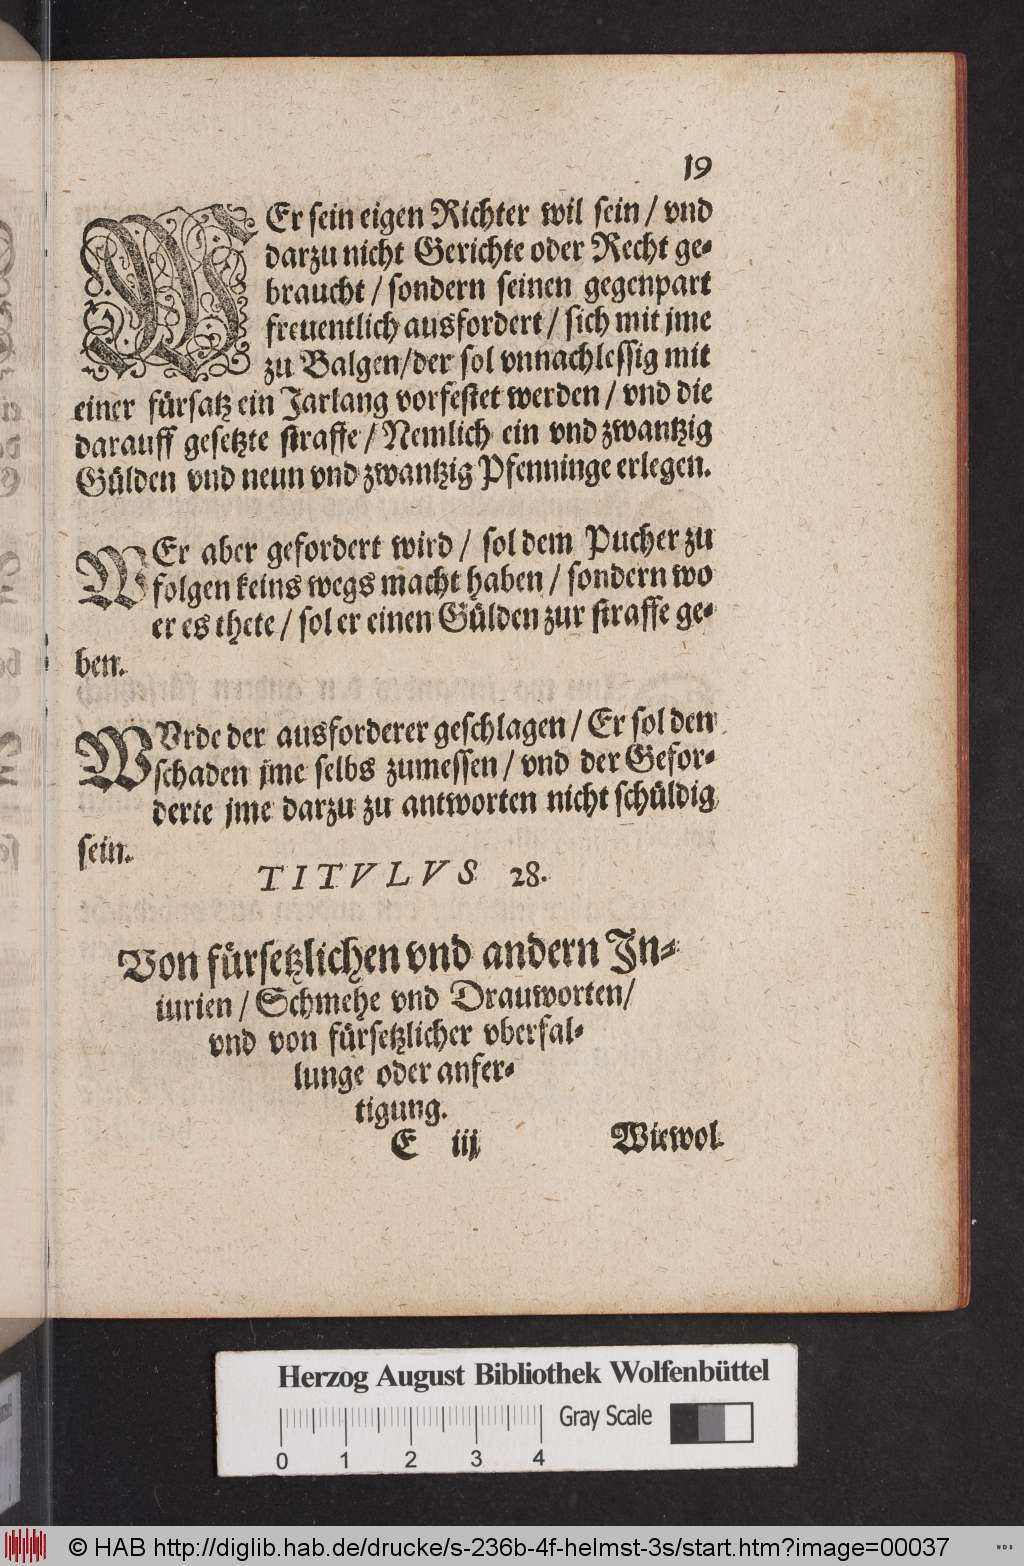 19
WEr sein eigen Richter wil sein / vnd
darzu nicht Gerichte oder Recht ge-
braucht / sondern seinen gegenpart
freuentlich ausfordert / sich mit jme
zu Balgen / der sol vnnachlessig mit
einer fürsatz ein Jarlang vorfestet werden / vnd die
darauff gesetzte straffe / Nemlich ein vnd zwantzig
Gülden vnd neun vnd zwantzig Pfenninge erlegen.
WEr aber gefordert wird / sol dem Pucher zu
folgen keins wegs macht haben / sondern wo
er es thete / sol er einen Gülden zur straffe ge-
ben.
WVrde der ausforderer geschlagen / Er sol den
schaden jme selbs zumessen / vnd der Gefor-
derte jme darzu zu antworten nicht schüldig
sein.
TITVLVS 28.
Von fürsetzlichen vnd andern In-
iurien / Schmehe vnd Drauworten /
vnd von fürsetzlicher vberfal-
lunge oder anfer-
tigung.
E iij Wiewol
Herzog August Bibliothek Wolfenbüttel
Gray Scale
0 1 2 3 4
© HAB http://diglib.hab.de/drucke/s-236b-4f-helmst-3s/start.htm?image=00037